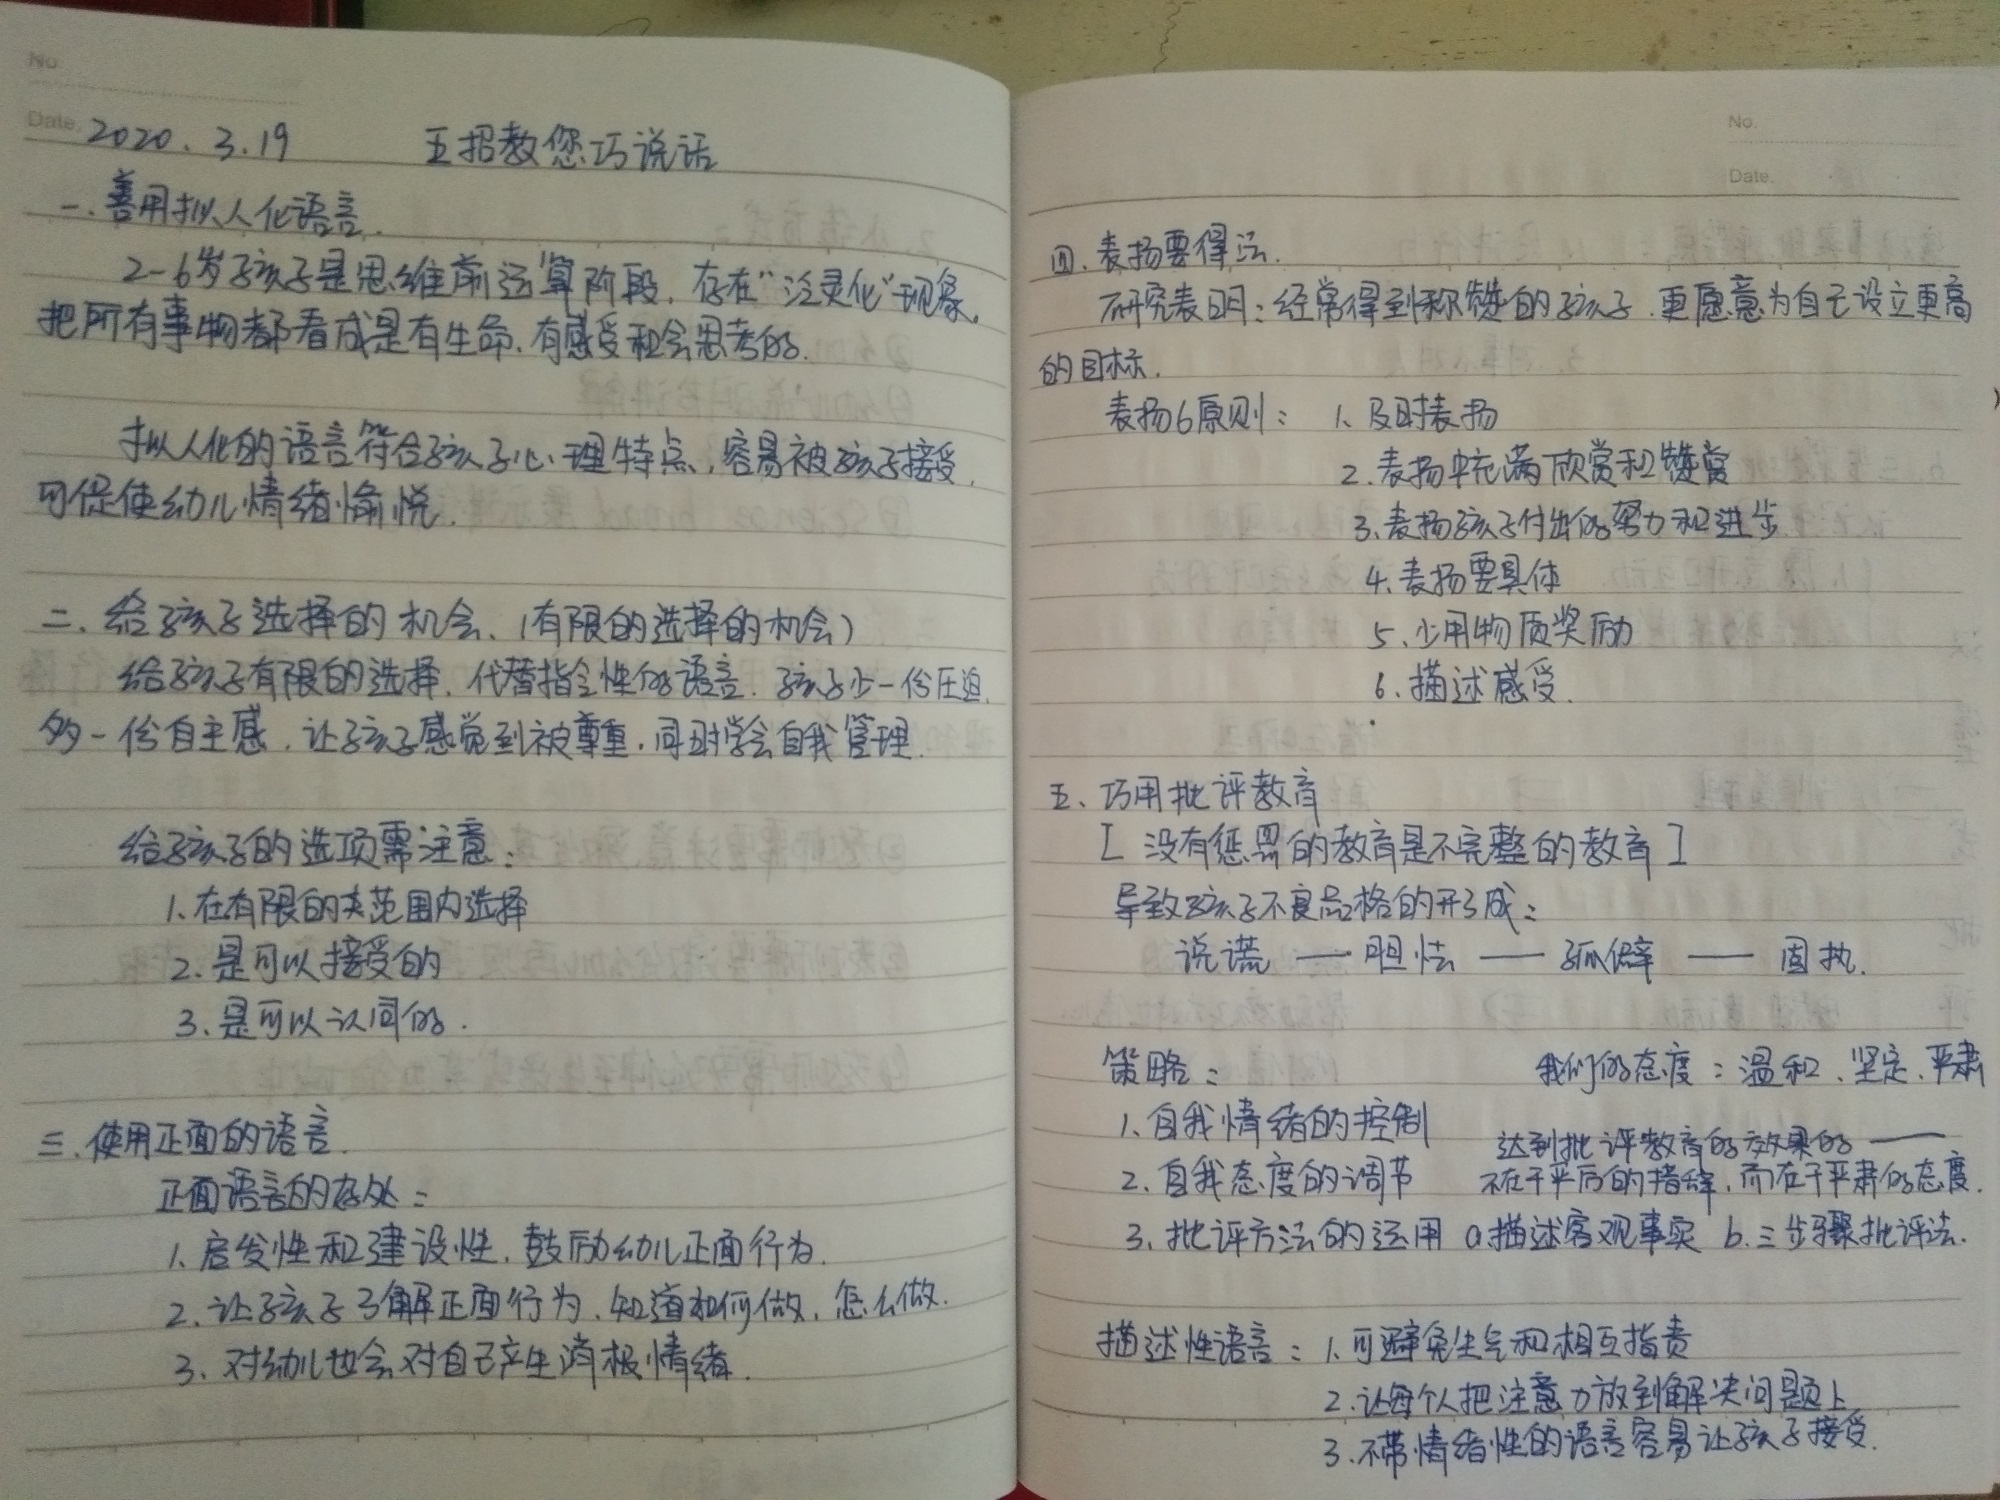 No.
Date. 2020.3.19 五招教您巧说话
一.善用拟人化语言.
2-6岁孩子是思维前运算阶段,存在"泛灵化"现象,
把所有事物都看成是有生命.有感受和会思考的.
拟人化的语言符合孩子心理特点,容易被孩子接受,
可促使幼儿情绪愉悦.
二.给孩子选择的机会.(有限的选择的机会)
给孩子有限的选择.代替指令性的语言.孩子少一份压迫
多一份自主感.让孩子感觉到被尊重,同时学会自我管理.
给孩子的选项需注意:
1.在有限的范围内选择
2.是可以接受的
3.是可以认同的.
三.使用正面的语言.
正面语言的好处:
1.启发性和建设性.鼓励幼儿正面行为.
2.让孩子了解正面行为.知道如何做.怎么做.
3.对幼儿也会对自己产生消极情绪.
No.
Date.
四.表扬要得法.
研究表明:经常得到称赞的孩子.更愿意为自己设立更高
的目标.
表扬6原则: 1.及时表扬
2.表扬中充满欣赏和赞赏
3.表扬孩子付出的努力和进步
4.表扬要具体
5.少用物质奖励
6.描述感受.
五.巧用批评教育
[没有惩罚的教育是不完整的教育]
导致孩子不良品格的形成:
说谎 — 胆怯 — 孤僻 — 固执.
策略: 我们的态度:温和.坚定.严肃
1.自我情绪的控制 达到批评教育的效果的——
2.自我态度的调节 不在于严厉的措辞,而在于严肃的态度.
3.批评方法的运用 a描述客观事实 b.三步骤批评法.
描述性语言: 1.可避免生气和相互指责
2.让每个人把注意力放到解决问题上
3.不带情绪性的语言容易让孩子接受.